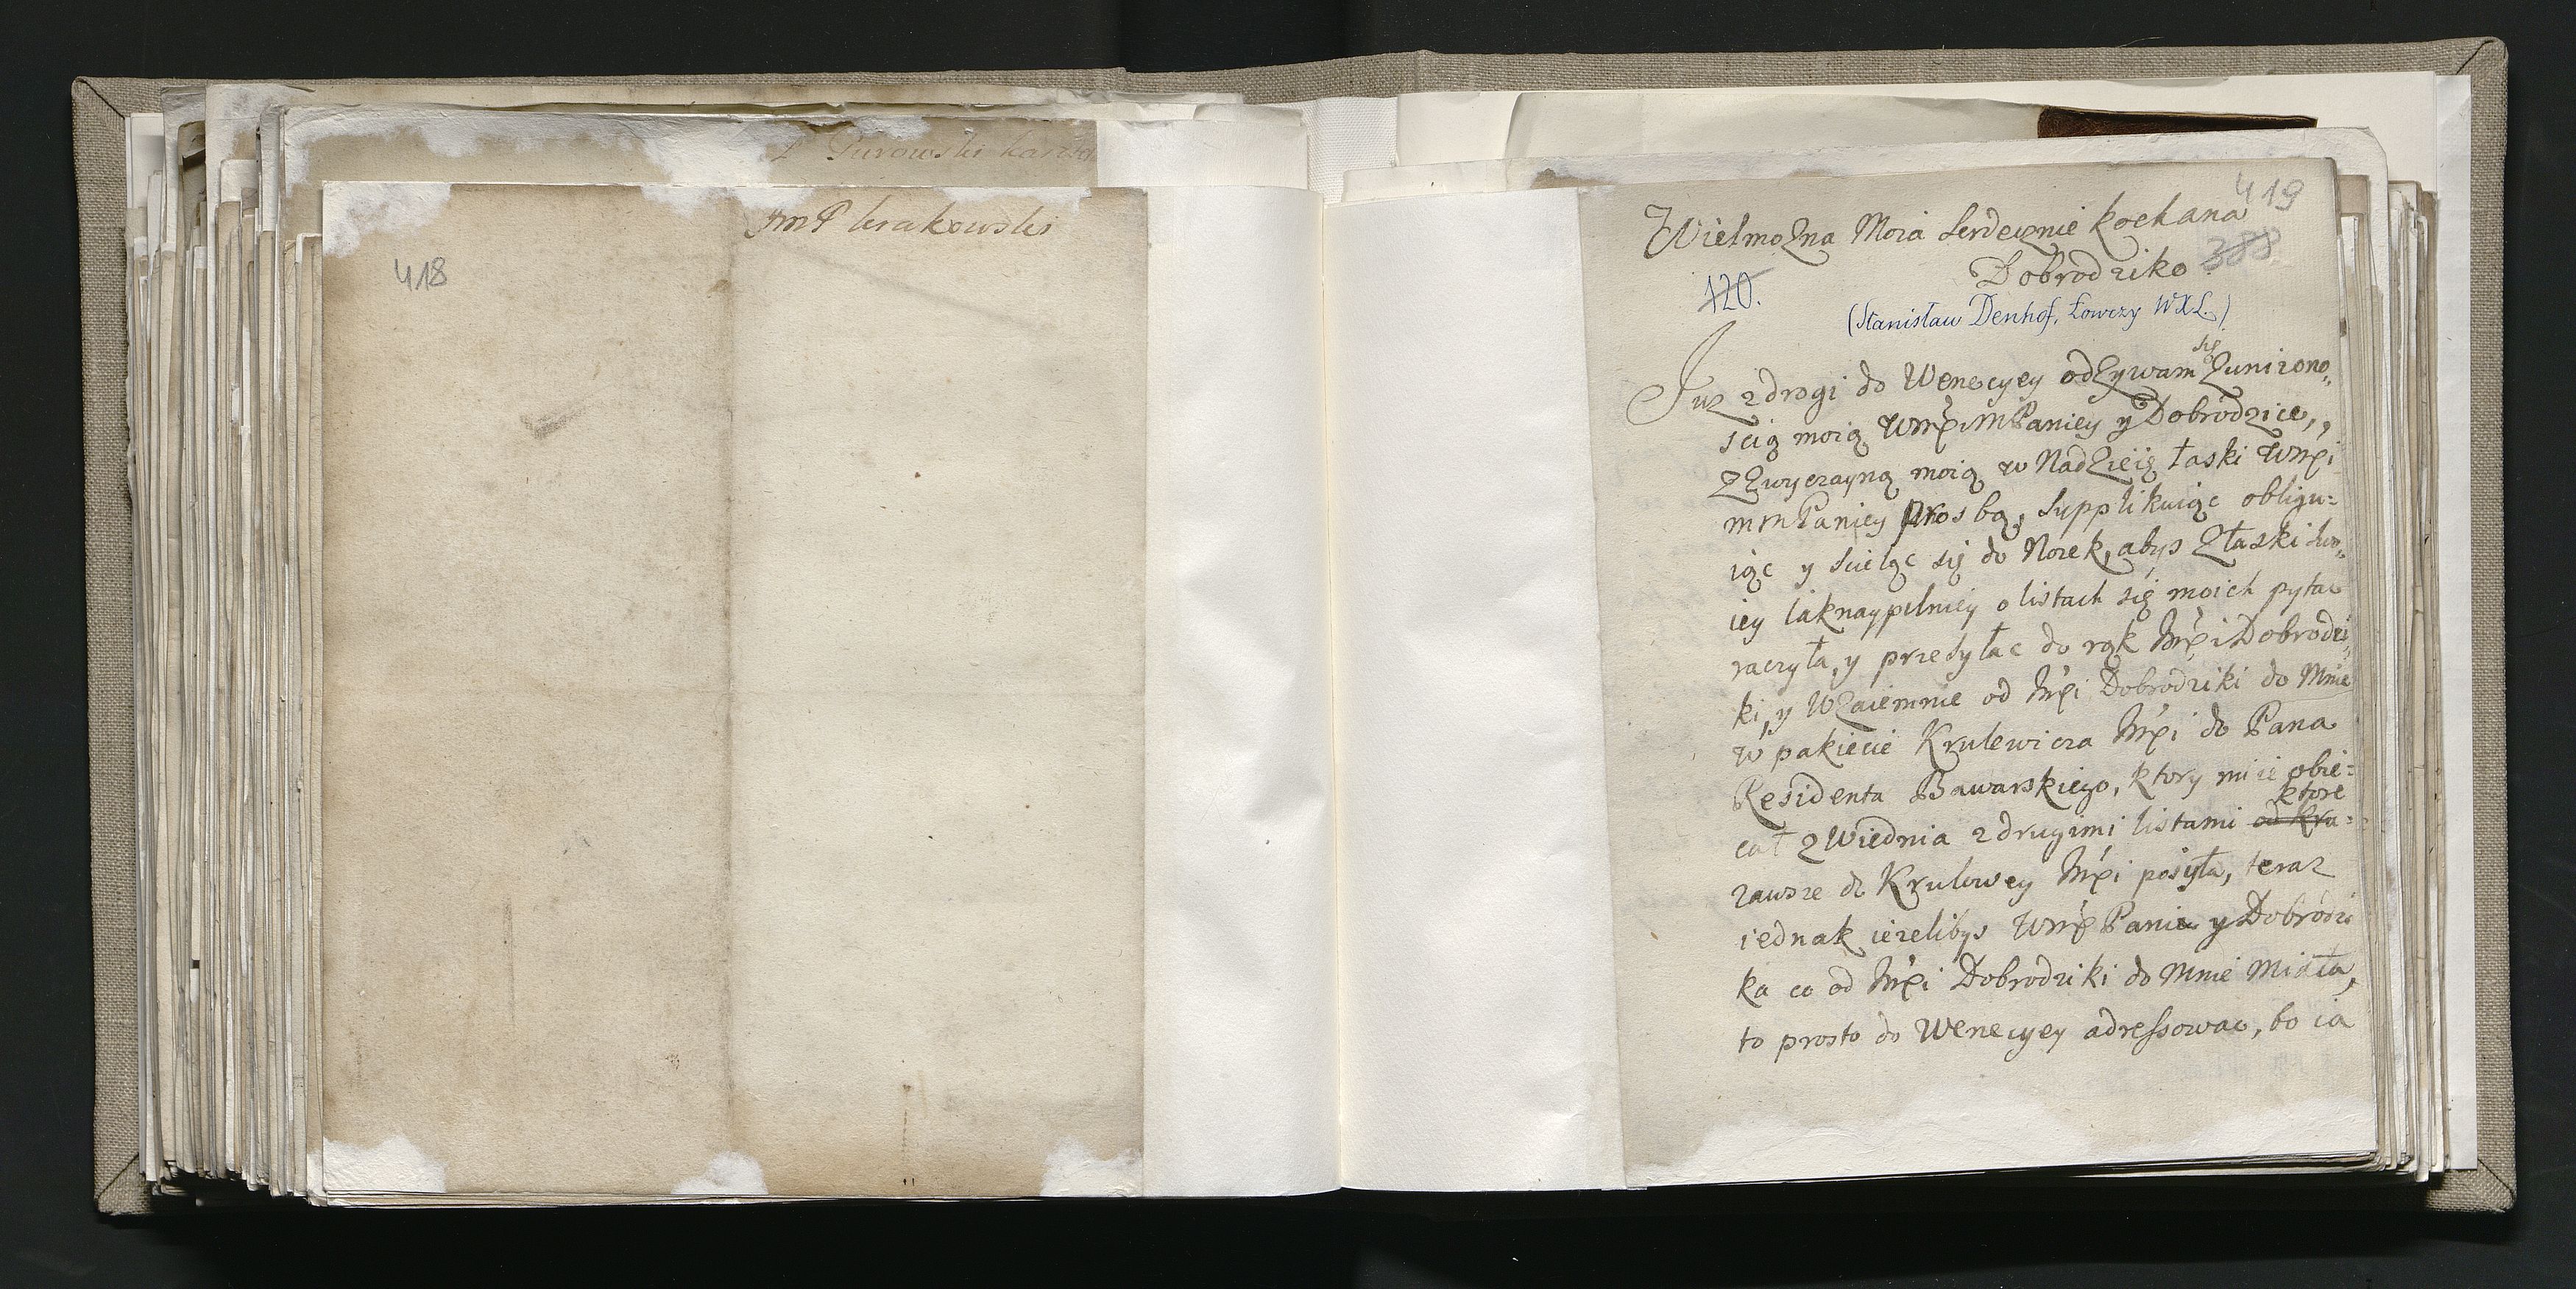 Purowski
JmP krakowski
418
419
Wielmozna Moia Serdecznie kochana
Dobrodziko
388
120.
(Stanisław Denhof, Łowczy WXL.)
Juz z drogi do Wenecyey odzywam się z unizono„
scią moią WMPMMPaniey y Dobrodzice,,
z zwyczayną moią w Nadzieię łaski WMPi
MMPaniey prosbą, supplikuiąc obligu=
iąc y scieląc się do Nozek, abys z łaski swo„
iey iaknaypilniey o listach się moich pytac
raczyła, y przesyłac do rąk JMPi Dobrodzi„
ki, y wzaiemnie od JMPi Dobrodziki do Mnie
w pakiecie Krulewicza JMPi do Pana
Residenta Bawarskiego, ktory mi ie obie=
ktore
cał z Wiednia z drugimi listami od Kru=
zawsze do Krulowey JMPi posyła, teraz
iednak iezelibys WMP Pani y Dobrodzi
ka co od JMPi Dobrodziki do Mnie Miała,
to prosto do Wenecyey adressowac, bo ia